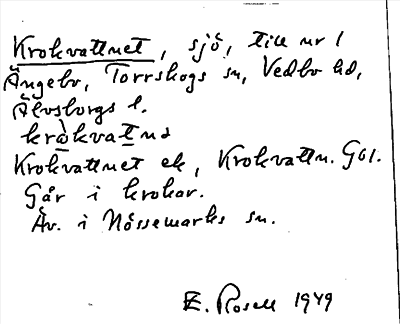 Krokvattnet, sjö, till nr 1
Ängebo, Torrskogs sn, Vedbo hd,
Älvsborgs l.
kròkvatnə
Krokvattnet ek, Krokvattn. GGl.
Går i krokar.
Äv. i Nössemarks sn.
E. Rosell 1949